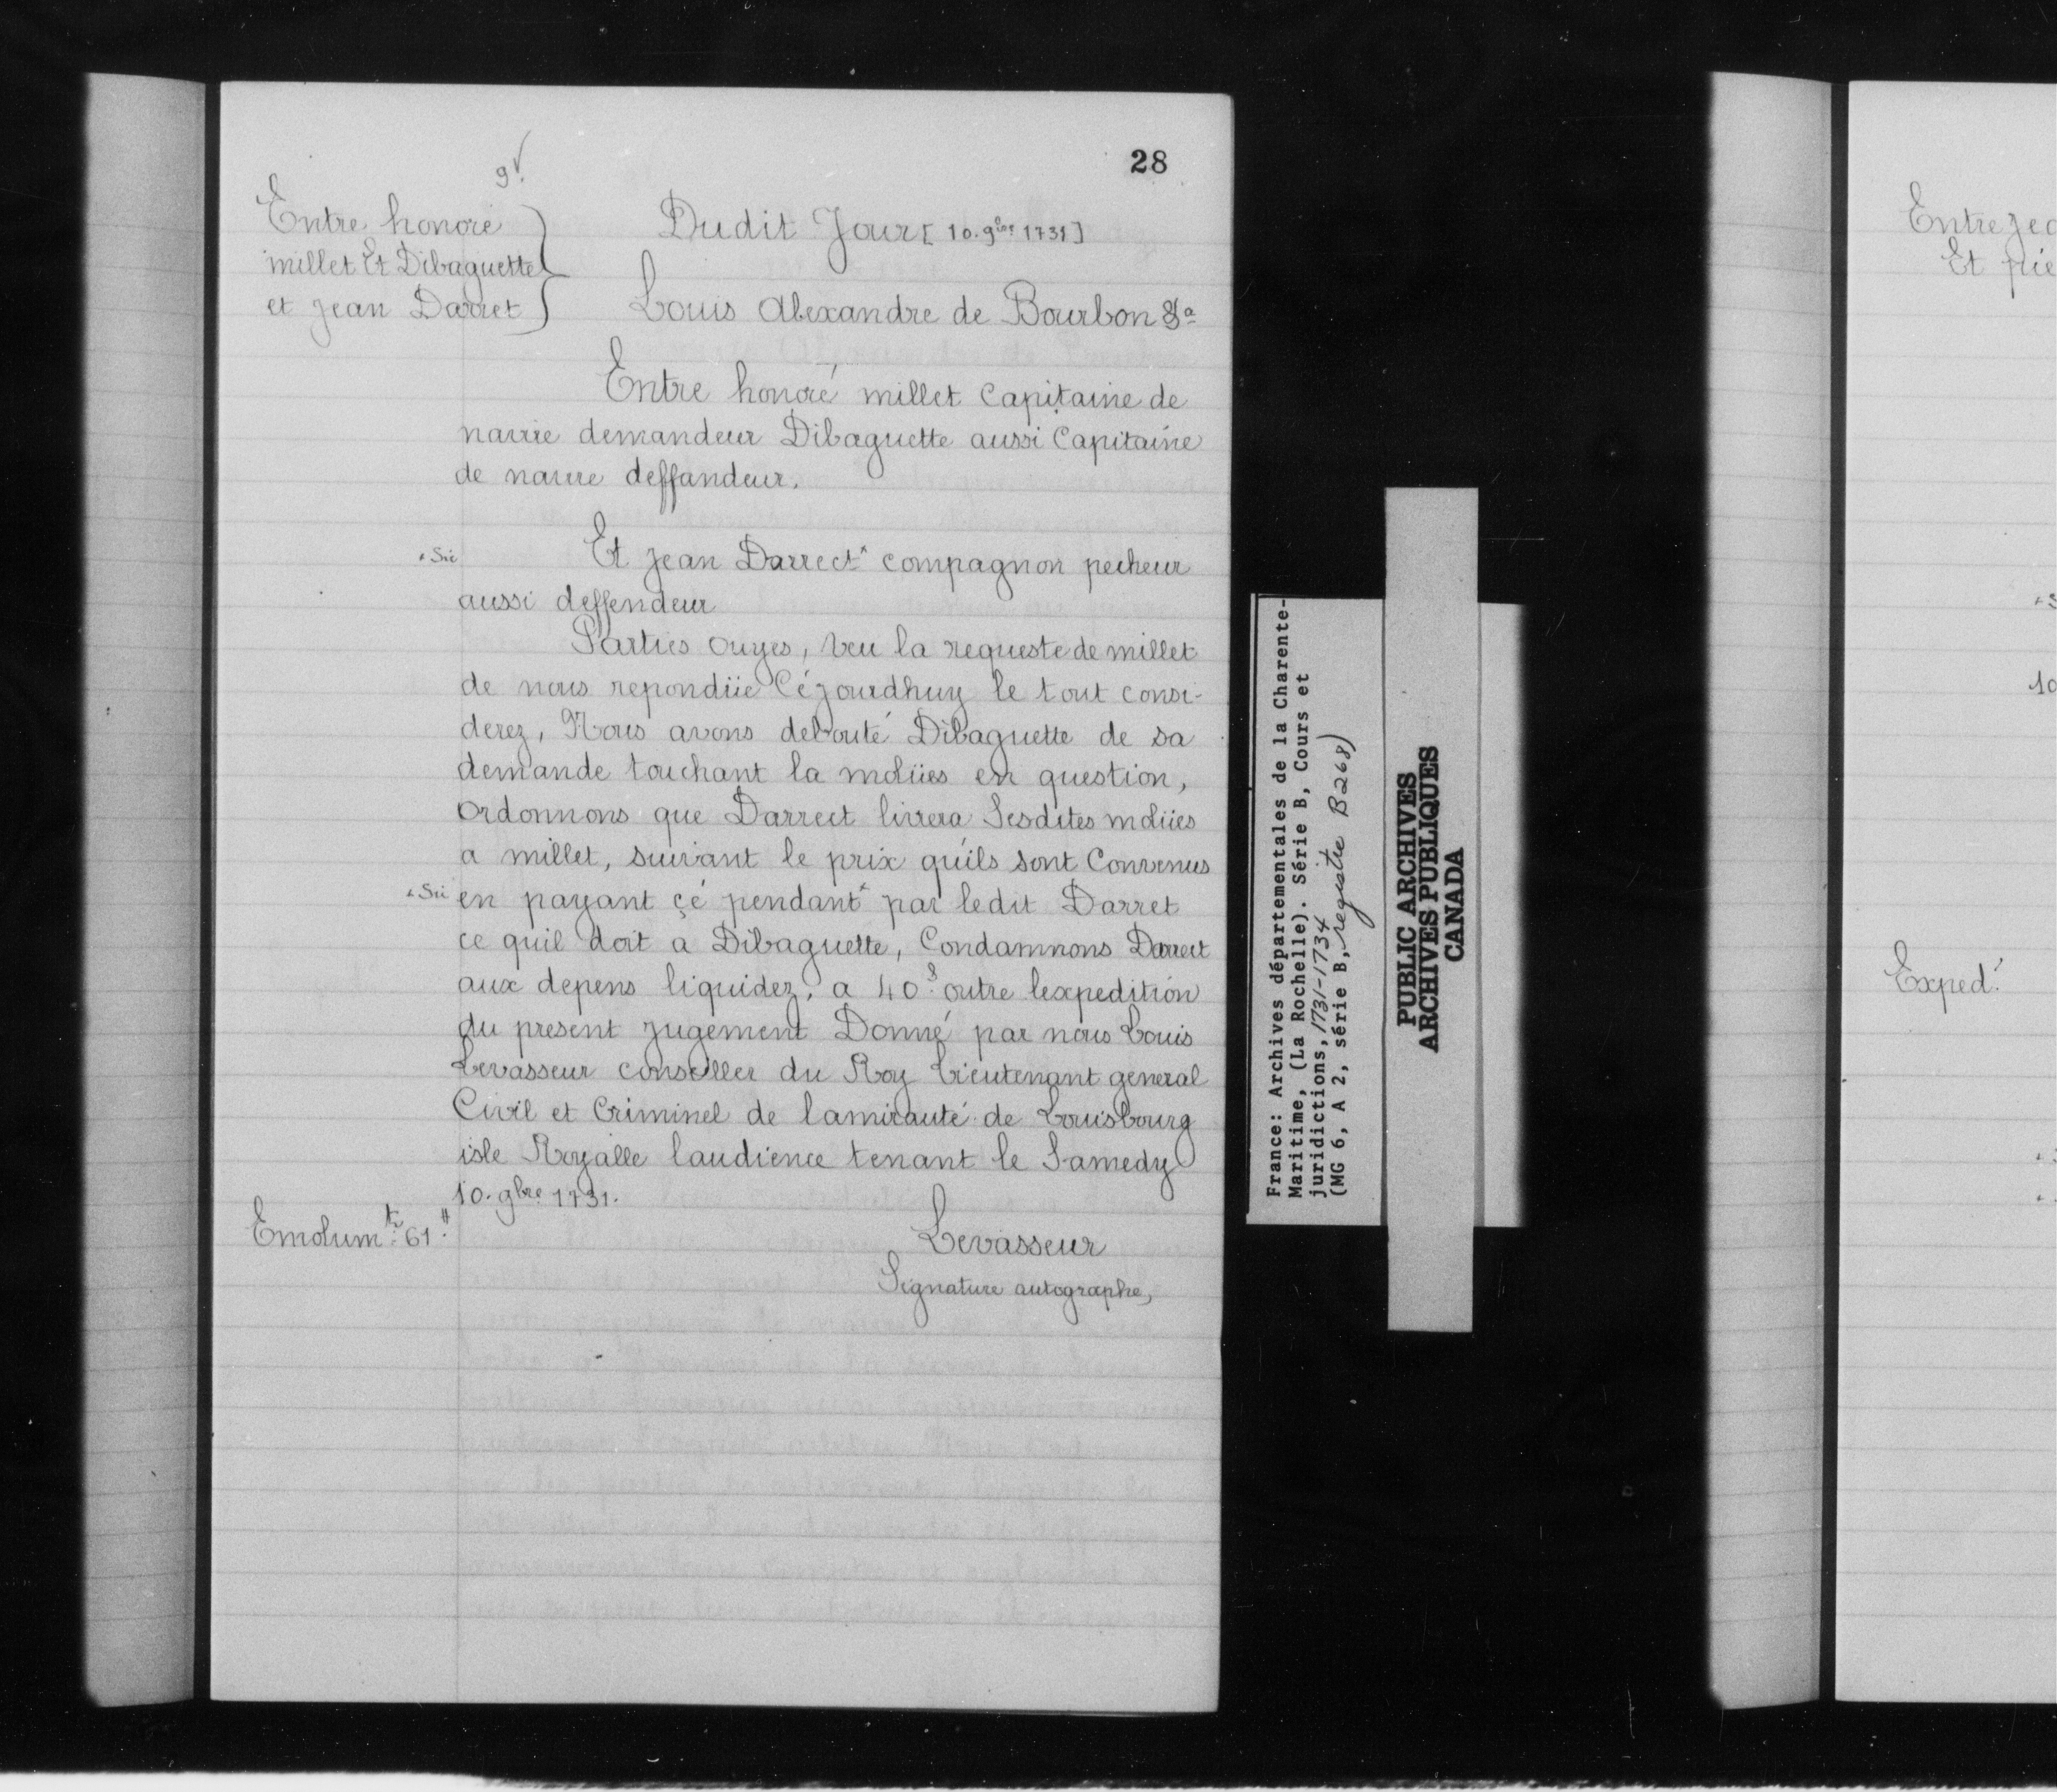 28
9v.
Entre honoré
millet Et Dibaguette
et jean Darret
Dudit Jour [10. 9bre 1731]
Louis Alexandre de Bourbon &a
Entre honoré millet Capitaine de
navire demandeur Dibaguette aussi Capitaine
de navire deffandeur.
+ Sic
Et jean Darrect+ compagnon pecheur
aussi deffendeur
Parties ouyes, veu la requeste de millet
de nous repondüe Céjourdhuy le tout consi-
derez, Nous avons debouté Dibaguette de sa
demande touchant la molües en question,
Ordonnons que Darrect livrera Sesdites molües
a millet, suivant le prix qu'ils sont Convenus
+ Sic
en payant çé pendant+ par ledit Darret
ce quil doit a Dibaguette, Condamnons Darrect
aux depens liquidez, a 40s. outre lexpedition
du present jugement Donné par nous Louis
Levasseur conseiller du Roy Lieutenant general
Civil et Criminel de lamirauté de Louisbourg
isle Royalle laudience tenant le Samedy
10. 9bre 1731.
Emolumts 61#
Levasseur
Signature autographe,
France: Archives départementales de la Charente-
Maritime, (La Rochelle). Série B, Cours et
juridictions, 1731-1734
(MG 6, A 2, série B, registre B268)
PUBLIC ARCHIVES
ARCHIVES PUBLIQUES
CANADA
Entre Jea
Et pie
10
Exped.